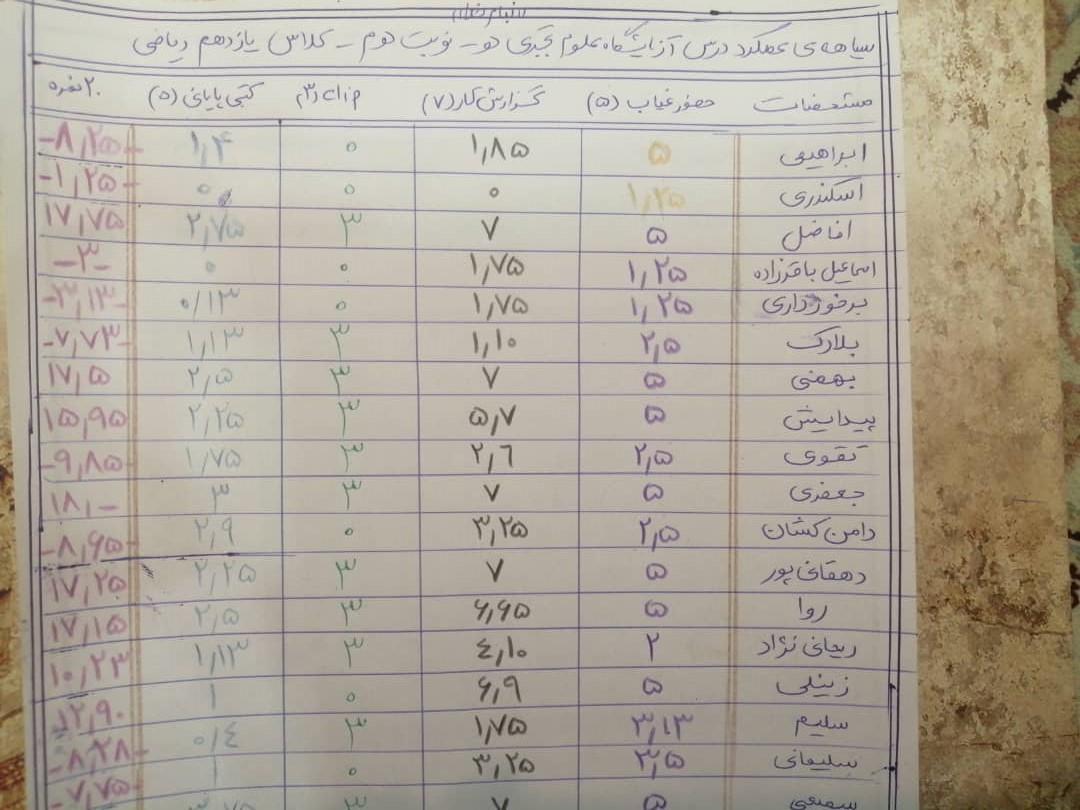 سیاهه‌ی عملکرد درس آزمایشگاه علوم تجربی دو - نوبت دوم - کلاس یازدهم ریاضی
مشخصات حضور غیاب (۵) گزارش کار (۷) (۳) کتبی پایانی (۵) ۲۰ نمره
ابراهیمی ۵ ۱,۸۵ ۰ ۱,۴ -۸,۲۵-
اسکندری ۱,۲۵ ۰ ۰ ۰ -۱,۲۵-
افاضل ۵ ۷ ۳ ۲,۷۵ ۱۷,۷۵
اسماعیل باقرزاده ۱,۲۵ ۱,۷۵ ۰ ۰ -۳-
برخورداری ۱,۲۵ ۱,۷۵ ۰ ۰/۱۳ -۳,۱۳-
بلارک ۲,۵ ۱,۱۰ ۳ ۱,۱۳ -۷,۷۳-
بهمنی ۵ ۷ ۳ ۲,۵ ۱۷,۵
پیدایش ۵ ۵,۷ ۳ ۲,۲۵ ۱۵,۹۵
تقوی ۲,۵ ۲,۶ ۳ ۱,۷۵ -۹,۸۵-
جعفری ۵ ۷ ۳ ۳ ۱۸,-
دامن کشان ۲,۵ ۳,۲۵ ۰ ۲,۹ -۸,۶۵-
دهقانی پور ۵ ۷ ۳ ۲,۲۵ ۱۷,۲۵
روا ۵ ۶,۶۵ ۳ ۲,۵ ۱۷,۱۵
ریحانی نژاد ۲ ۴,۱۰ ۳ ۱,۱۳ ۱۰,۲۳
زینلی ۵ ۶,۹ ۰ ۱ ۱۲,۹۰
سلیم ۳,۱۳ ۱,۷۵ ۳ ۰/۴ -۸,۲۸-
سلیمانی ۳,۵ ۳,۲۵ ۰ ۱ -۷,۷۵-
سمیعی ۵ ۷ ۳